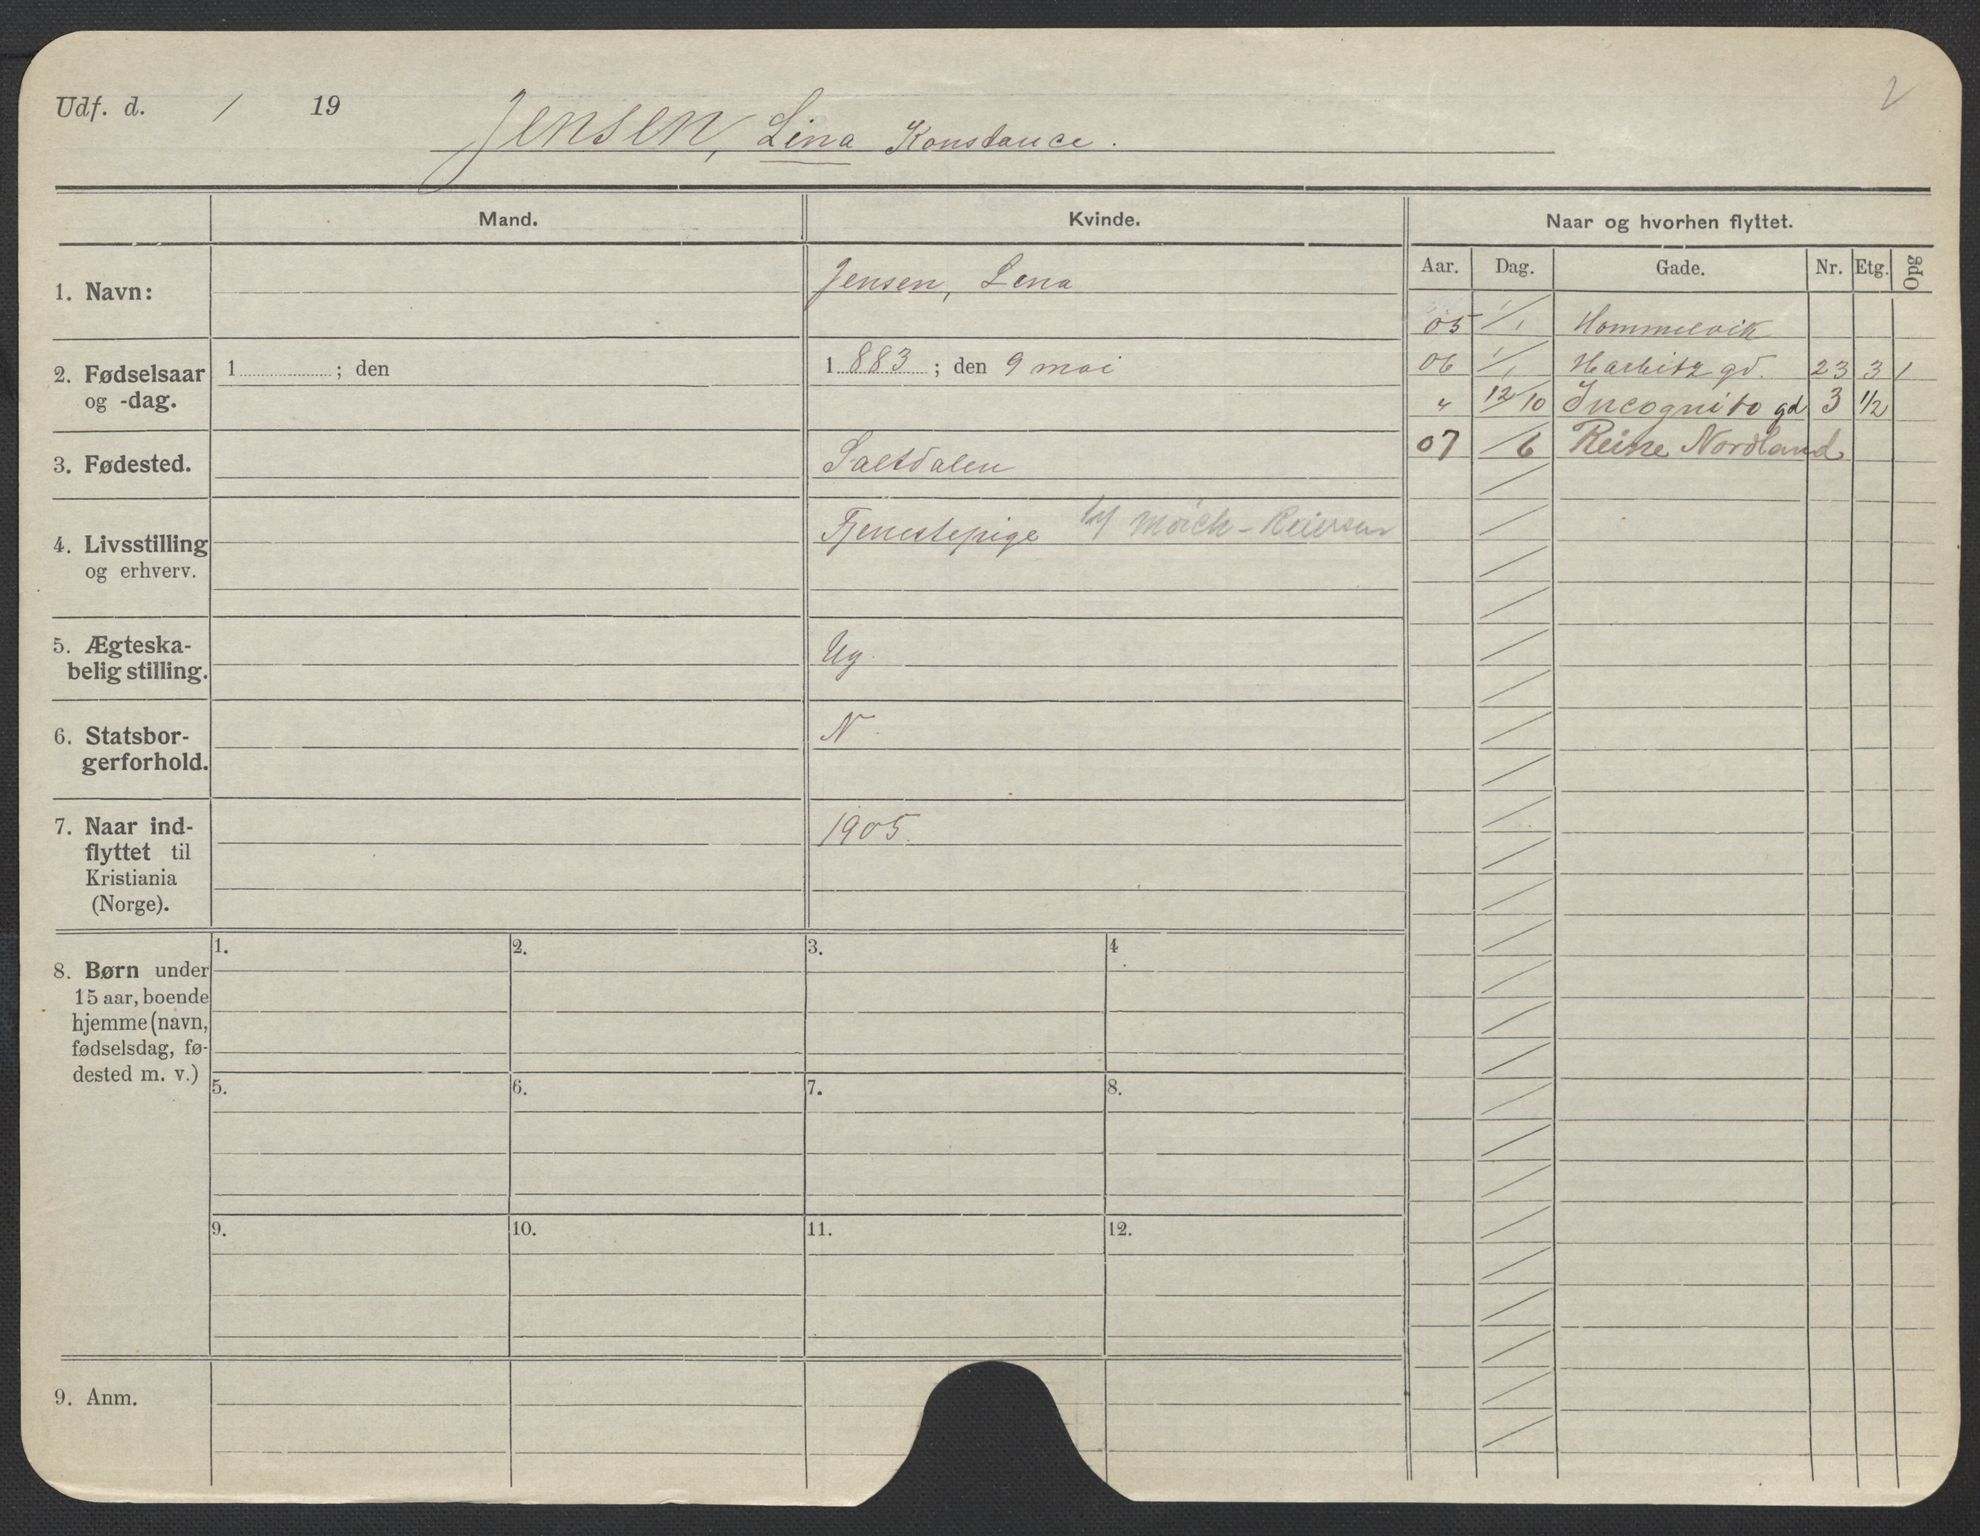 Udf. d. / 19
Jensen, Lina Konstance.
Mand.
Kvinde.
Naar og hvorhen flyttet.
Aar. Dag. Gade. Nr. Etg. Opg
1. Navn:
Jensen, Lina
2. Fødselsaar
og -dag.
1 ; den
1 883 ; den 9 mai
3. Fødested.
Saltdalen
4. Livsstilling
og erhverv.
Tjenestepige
5. Ægteska-
belig stilling.
Ug.
6. Statsbor-
gerforhold.
N.
7. Naar ind-
flyttet til
Kristiania
(Norge).
1905.
05 1/1 Hommelvik
06 1/1 Harbitz gd. 23 3 1
" 12/10 Incognito gd 3 1/2
07 /6 Reine Nordland
8. Børn under
15 aar, boende
hjemme (navn,
fødselsdag, fø-
dested m. v.)
1. 2. 3. 4
5. 6. 7. 8.
9. 10. 11. 12.
9. Anm.